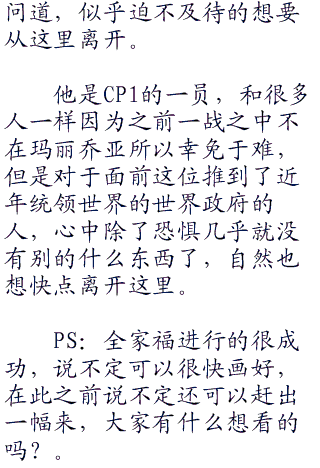 问道，似乎迫不及待的想要
从这里离开。
他是CP1的一员，和很多
人一样因为之前一战之中不
在玛丽乔亚所以幸免于难，
但是对于面前这位推到了近
年统领世界的世界政府的
人，心中除了恐惧几乎就没
有别的什么东西了，自然也
想快点离开这里。
PS：全家福进行的很成
功，说不定可以很快画好，
在此之前说不定还可以赶出
一幅来，大家有什么想看的
吗？。